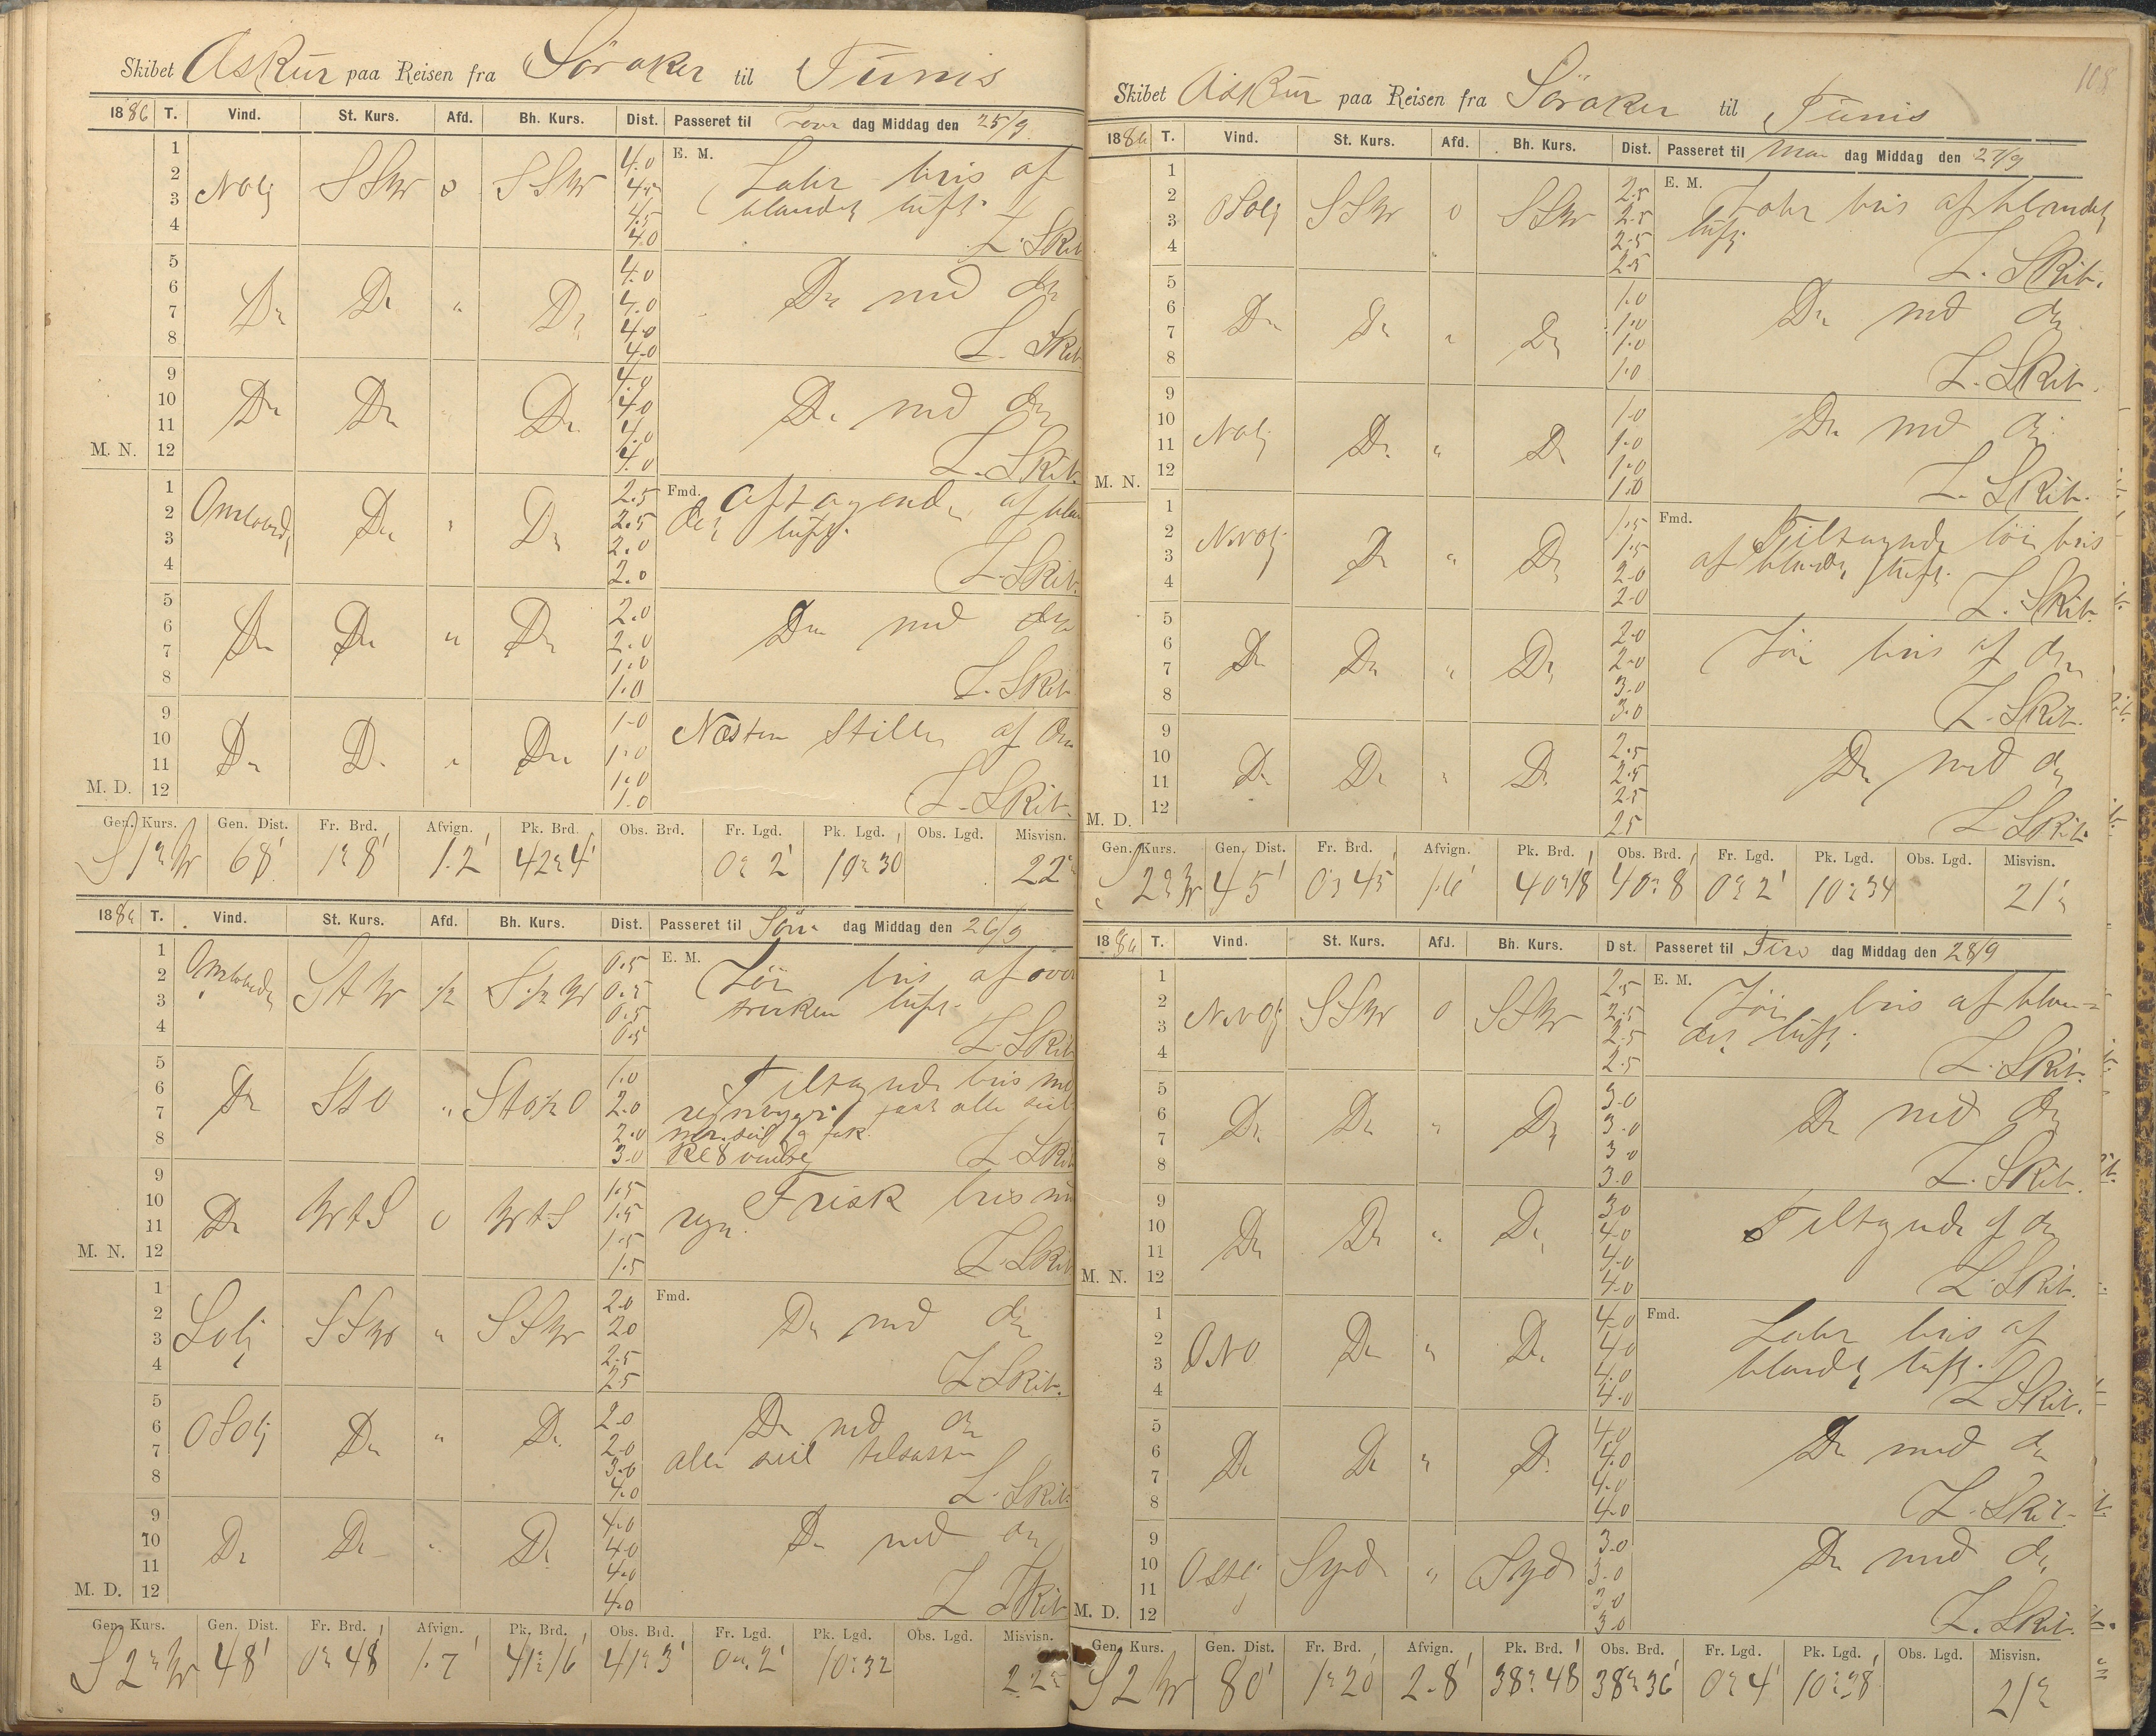 Skibet Askur paa Reisen fra Söraker til Tunis
1886 T. Vind. St. Kurs. Afd. Bh. Kurs. Dist. Passeret til dag Middag den 25/9
1 4.0 E. M. Labr bris af
2 Nolj SSW 0 SSW 4.5 blandet luft.
3 4.5
4 4.0 L. Skib
5 4.0
6 Do Do " Do 4.0 Do med do
7 4.0
8 4.0 L. Skib
9 4.0
10 Do Do " Do 4.0 Do med do
11 4.0
M. N. 12 4.0 L. Skib.
1 2.5 Fmd. Aftagende af blan
2 Omløbende Do " Do 2.5 det luft.
3 2.0
4 2.0 L. Skib.
5 2.0
6 Do Do " Do 2.0 Do med do
7 1.0
8 1.0 L. Skib
9 1.0 Næsten Stille af do
10 Do Do " Do 1.0
11 1.0
M. D. 12 1.0 L. Skib.
Gen. Kurs. Gen. Dist. Fr. Brd. Afvign. Pk. Brd. Obs. Brd. Fr. Lgd. Pk. Lgd. Obs. Lgd. Misvisn.
S 1° W 68' 1° 8' 1.2' 42° 4' 0° 2' 10° 30' 22°
1886 T. Vind. St. Kurs. Afd. Bh. Kurs. Dist. Passeret til Sön dag Middag den 26/9
1 0.5 E. M. Lör bris af over
2 Omløbende StW ½ S½W 0.5 trukken luft.
3 0.5
4 0.5 L. Skib
5 1.0 Tiltagende bris med
6 Do StO " StO½O 2.0 regnbyger fast alle seil
7 2.0 mer. seil og fok.
8 3.0 Kl 8 vendte L. Skib
9 1.5 Frisk bris med
10 Do WtS 0 WtS 1.5 regn.
11 1.5
M. N. 12 1.5 L. Skib
1 2.0 Fmd.
2 Solj SSW " SSW 2.0 Do med do
3 2.5
4 2.5 L. Skib.
5 2.0 Do med do
6 OSolj Do " Do 2.0 alle seil tilsatte
7 3.0
8 4.0 L. Skib.
9 4.0
10 Do Do " Do 4.0 Do med do
11 4.0
M. D. 12 4.0 L. Skib
Gen. Kurs. Gen. Dist. Fr. Brd. Afvign. Pk. Brd. Obs. Brd. Fr. Lgd. Pk. Lgd. Obs. Lgd. Misvisn.
S 2° W 48' 0° 48' 1.7' 41° 16' 41° 3' 0° 2' 10° 32 22°
108
Skibet Askur paa Reisen fra Söraker til Tunis
1886 T. Vind. St. Kurs. Afd. Bh. Kurs. Dist. Passeret til Man dag Middag den 27/9
1 2.5 E. M. Labr bris af blandet
2 OSolj SSW 0 SSW 2.5 luft.
3 2.5
4 2.5 L. Skib.
5 1.0
6 Do Do " Do 1.0 Do med do
7 1.0
8 1.0 L. Skib.
9 1.0
10 Nolj Do " Do 1.0 Do med do
11 1.0
M. N. 12 1.0 L. Skib.
1 1.5 Fmd. Tiltagende lör bris
2 NNOlj Do " Do 1.5 af blandet luft.
3 2.0
4 2.0 L. Skib.
5 2.0 Lör bris af do
6 Do Do " Do 2.0
7 3.0
8 3.0 L. Skib.
9 2.5
10 Do Do " Do 2.5 Do med do
11 2.5
M. D. 12 2.5 L. Skib.
Gen. Kurs. Gen. Dist. Fr. Brd. Afvign. Pk. Brd. Obs. Brd. Fr. Lgd. Pk. Lgd. Obs. Lgd. Misvisn.
S 2° W 45' 0° 45' 1.6' 40° 18' 40° 8' 0° 2' 10° 34 21°
1886 T. Vind. St. Kurs. Afd. Bh. Kurs. Dist. Passeret til Tirs dag Middag den 28/9
1 2.5 E. M. Lör bris af blan=
2 NNOlj SSW 0 SSW 2.5 det luft.
3 2.5
4 2.5 L. Skib.
5 3.0
6 Do Do " Do 3.0 Do med do
7 3.0
8 3.0 L. Skib.
9 3.0 Tiltagende af do
10 Do Do " Do 4.0
11 4.0
M. N. 12 4.0 L. Skib.
1 4.0 Fmd. Labr bris af
2 ONO Do " Do 4.0 blandet luft.
3 4.0
4 4.0 L. Skib.
5 4.0
6 Do Do " Do 4.0 Do med do
7 4.0
8 4.0 L. Skib.
9 3.0
10 Ostlj Syd " Syd 3.0 Do med do
11 3.0
M. D. 12 3.0 L. Skib.
Gen. Kurs. Gen. Dist. Fr. Brd. Afvign. Pk. Brd. Obs. Brd. Fr. Lgd. Pk. Lgd. Obs. Lgd. Misvisn.
S 2 W 80' 1° 20' 2.8' 38° 48' 38° 36' 0° 4' 10° 38' 21°